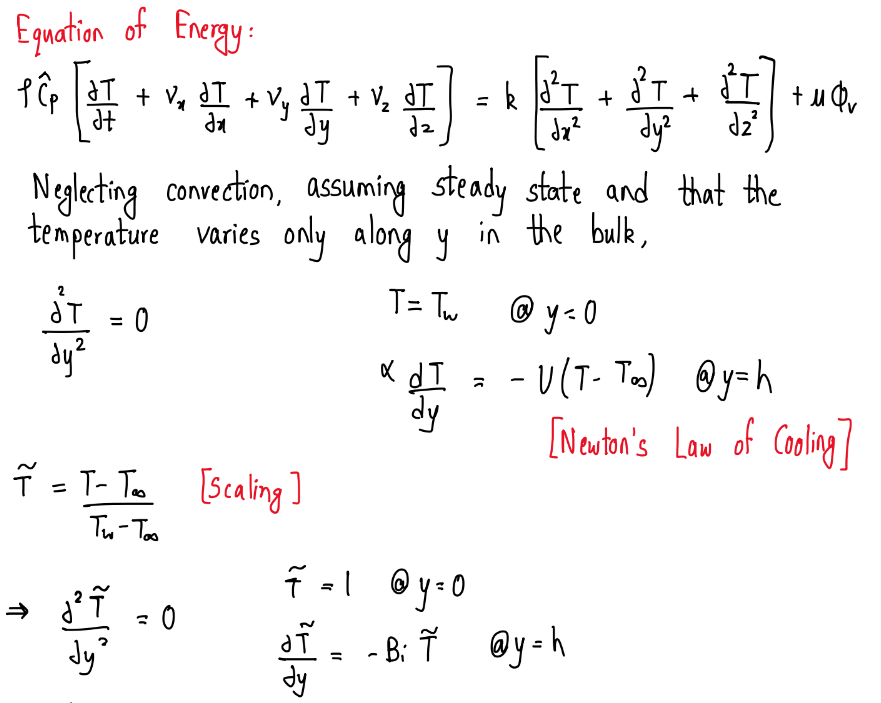 Equation of Energy:
ρĈp [∂T/∂t + Vx ∂T/∂x + Vy ∂T/∂y + Vz ∂T/∂z] = k [∂²T/∂x² + ∂²T/∂y² + ∂²T/∂z²] + μΦv
Neglecting convection, assuming steady state and that the
temperature varies only along y in the bulk,
∂²T/∂y² = 0    T = Tw @ y = 0
α dT/dy = - U(T - T∞) @ y = h
[Newton's Law of Cooling]
T̃ = T - T∞ / Tw - T∞ [Scaling]
⇒ ∂²T̃/∂y² = 0    T̃ = 1 @ y = 0
∂T̃/∂y = - Bi T̃ @ y = h